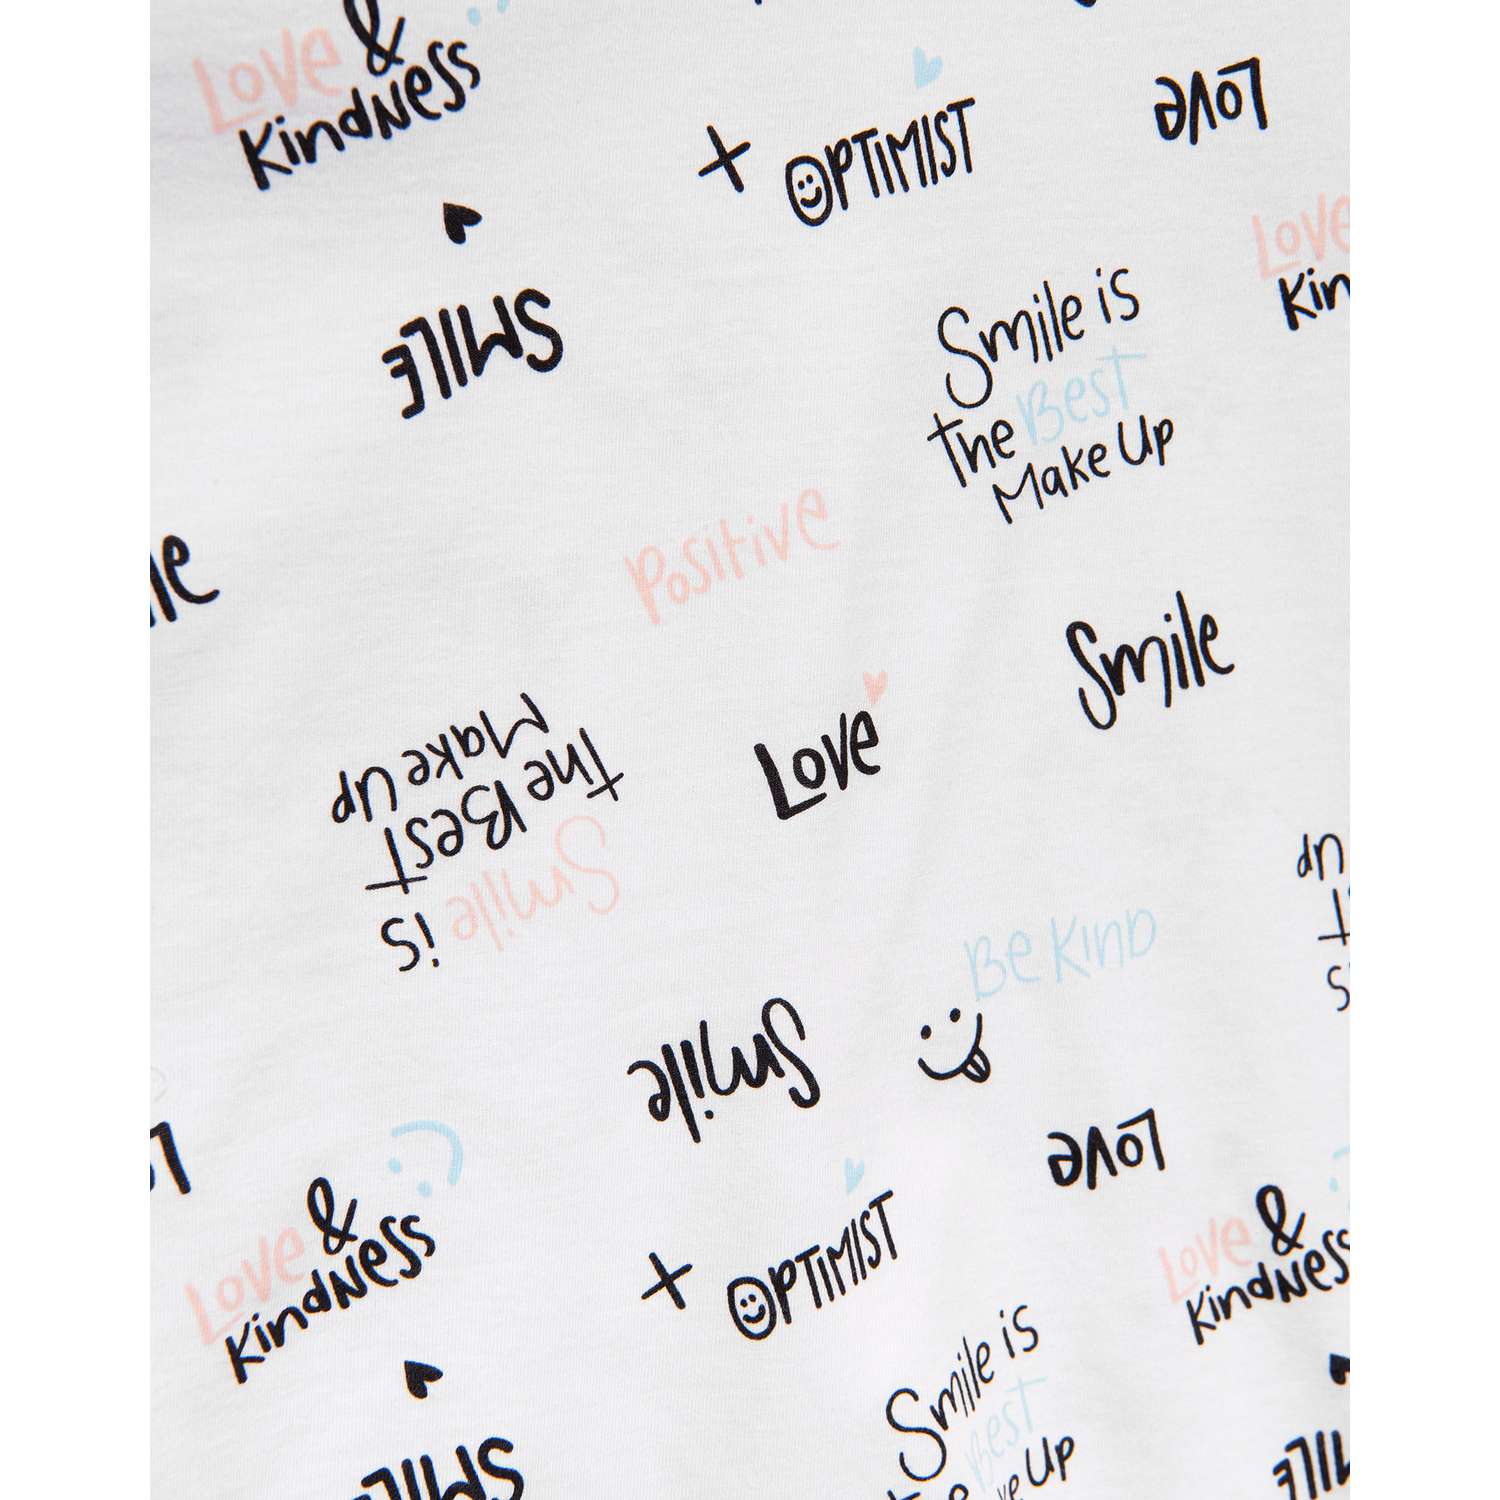 Love &
Kindness
+ OPTIMIST
Love
SMILE
Love
Kin
Smile is
the Best
Make Up
Positive
Smile
Love
Smile
is
the Best
Make up
Be Kind
Smile
Love
Love &
Kindness
+ OPTIMIST
Love &
Kindness
Smile is
Best
Up
SMILE
up